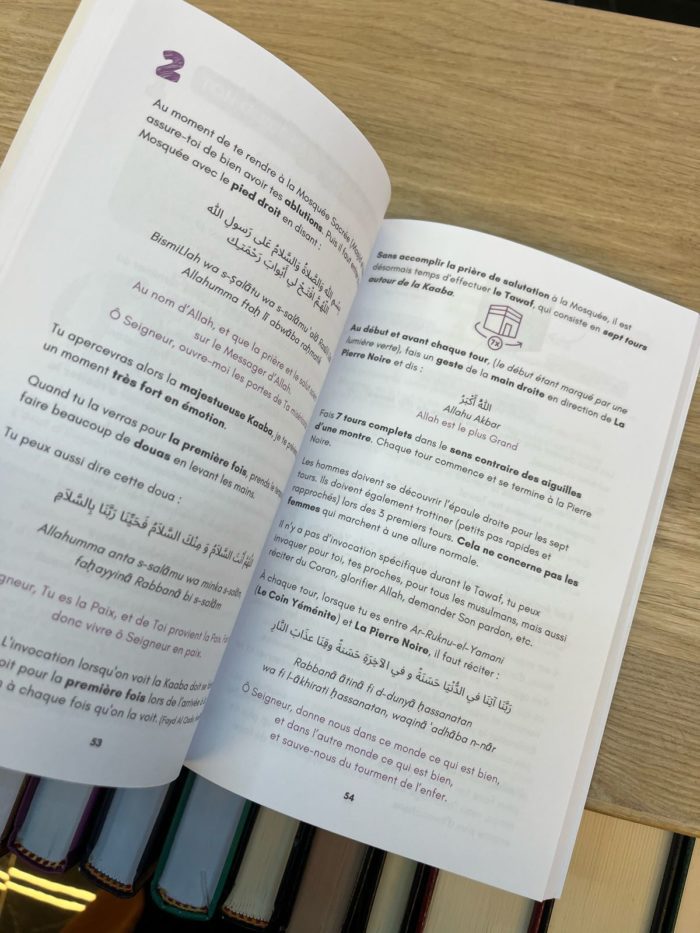 2
Au moment de te rendre à la Mosquée Sacrée
assure-toi de bien avoir tes ablutions. Puis il faut
Mosquée avec le pied droit en disant :
بِسْمِ اللهِ وَالصَّلَاةُ وَالسَّلَامُ عَلَى رَسولِ الله
اللَّهُمَّ افْتَحْ لِي أَبْوَابَ رَحْمَتِكَ
BismiLlah wa s-ṣalātu wa s-salāmu 'alā
Allahumma ftaḥ lī abwāba raḥmatik
Au nom d'Allah, et que la prière et le salut soient
sur le Messager d'Allah.
Ô Seigneur, ouvre-moi les portes de Ta
Tu apercevras alors la majestueuse Kaaba, je te
un moment très fort en émotion.
Quand tu la verras pour la première fois, prends le
faire beaucoup de douas en levant les mains.
Tu peux aussi dire cette doua :
اللَّهُمَّ أَنْتَ السَّلَامُ وَ مِنْكَ السَّلَامُ فَحَيِّنَا رَبَّنَا بِالسَّلَامِ
Allahumma anta s-salāmu wa minka s-salām,
faḥayyinā Rabbanā bi s-salām
gneur, Tu es la Paix, et de Toi provient la Paix,
donc vivre ô Seigneur en paix.
L'invocation lorsqu'on voit la Kaaba doit se
oit pour la première fois lors de l'arrivée à
n à chaque fois qu'on la voit.
53
Sans accomplir la prière de salutation à la Mosquée, il est
désormais temps d'effectuer le Tawaf, qui consiste en sept tours
autour de la Kaaba.
7X
Au début et avant chaque tour, (le début étant marqué par une
lumière verte), fais un geste de la main droite en direction de La
Pierre Noire et dis :
اللهُ أَكْبَرُ
Allahu Akbar
Allah est le plus Grand
Fais 7 tours complets dans le sens contraire des aiguilles
d'une montre. Chaque tour commence et se termine à la Pierre
Noire.
Les hommes doivent se découvrir l'épaule droite pour les sept
tours. Ils doivent également trottiner (petits pas rapides et
rapprochés) lors des 3 premiers tours. Cela ne concerne pas les
femmes qui marchent à une allure normale.
Il n'y a pas d'invocation spécifique durant le Tawaf, tu peux
invoquer pour toi, tes proches, pour tous les musulmans, mais aussi
réciter du Coran, glorifier Allah, demander Son pardon, etc.
À chaque tour, lorsque tu es entre Ar-Ruknu-el-Yamani
(Le Coin Yéménite) et La Pierre Noire, il faut réciter :
رَبَّنَا آتِنَا فِي الدُّنْيَا حَسَنَةً و فِي الآخِرَةِ حَسَنَةً وَقِنَا عَذَابَ النَّارِ
Rabbanā ātinā fi d-dunyā ḥassanatan
wa fi l-ākhirati ḥassanatan, waqinā 'adhāba n-nār
Ô Seigneur, donne nous dans ce monde ce qui est bien,
et dans l'autre monde ce qui est bien,
et sauve-nous du tourment de l'enfer.
54